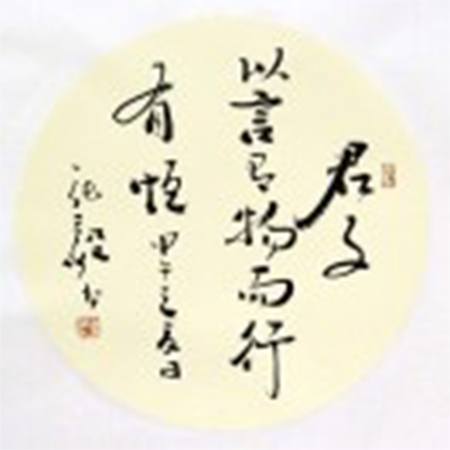 君子
以言有物而行
有恒 甲午之夏日
书